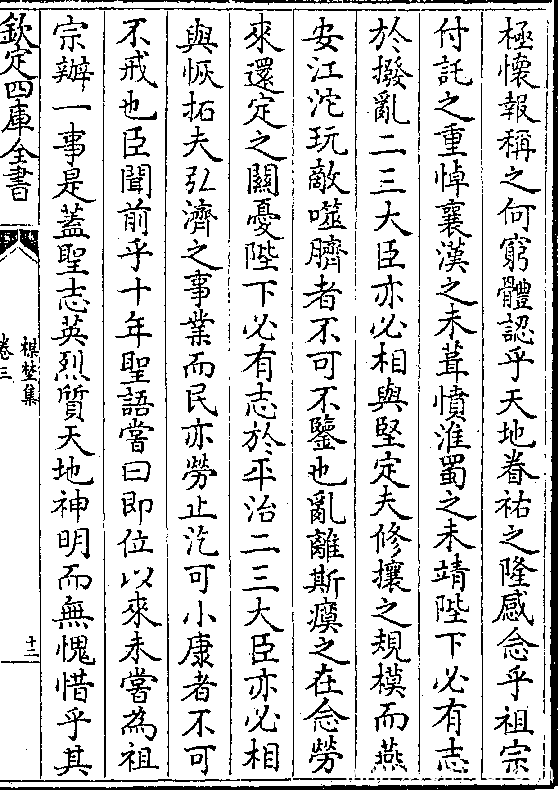 極懷報稱之何窮體認乎天地眷祐之隆感念乎祖宗
付託之重悼襄漢之未葺憤淮蜀之未靖陛下必有志
於撥亂二三大臣亦必相與堅定夫修攘之規模而燕
安江沱玩敵噬臍者不可不鑒也亂離斯瘼之在念勞
來還定之關憂陛下必有志於平治二三大臣亦必相
與恢拓夫弘濟之事業而民亦勞止汔可小康者不可
不戒也臣聞前乎十年聖語嘗曰即位以來未嘗為祖
宗辦一事是蓋聖志英烈質天地神明而無愧惜乎其
欽定四庫全書
楳埜集
卷三
十二